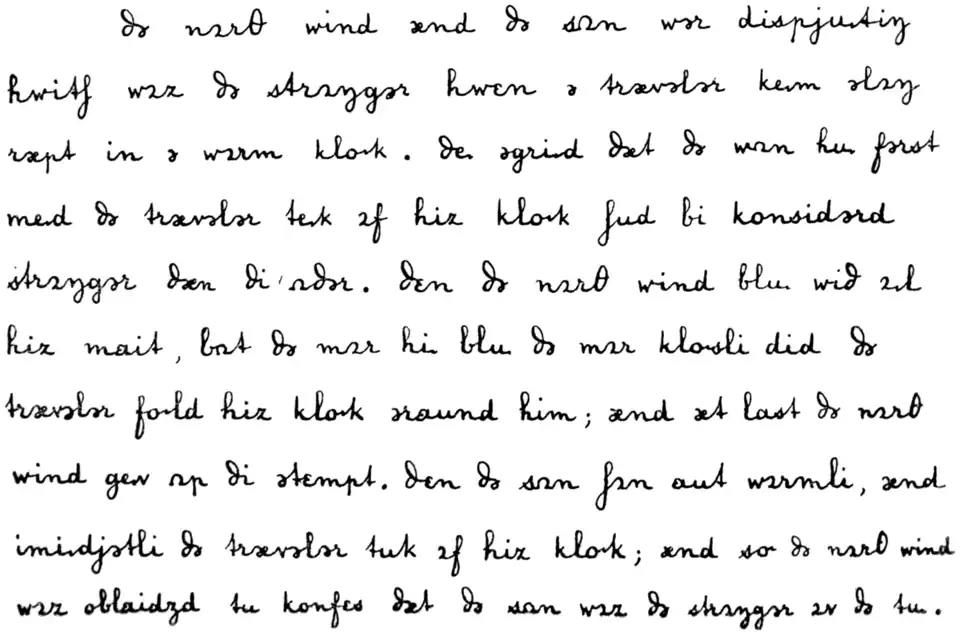 ðə nɔrθ wind ænd ðə sʌn wər dispjuˑtiŋ
hwitʃ wɔz ðə strɔŋgər hwɛn ə trævələr keˑm əlɔŋ
ræpt in ə wɔrm kloˑk. ðeˑ əgriˑd ðæt ðə wʌn huˑ fərst
meˑd ðə trævələr teˑk ɔf hiz kloˑk ʃud bi konsidərd
strɔŋgər ðæn ði ˈʌðər. ðɛn ðə nɔrθ wind bluˑ wið ɔˑl
hiz mait, bʌt ðə mɔr hiˑ bluˑ ðə mɔr kloˑsli did ðə
trævələr foˑld hiz kloˑk əraund him; ænd æt last ðə nɔrθ
wind geˑv ʌp ði ətɛmpt. ðɛn ðə sʌn ʃɔn aut wɔrmli, ænd
imiˑdjətli ðə trævələr tuk ɔf hiz kloˑk; ænd soˑ ðə nɔrθ wind
wɔz oblaidʒd tu konfes ðæt ðə sʌn wɔz ðə strɔŋgər ɔv ðə tuˑ.